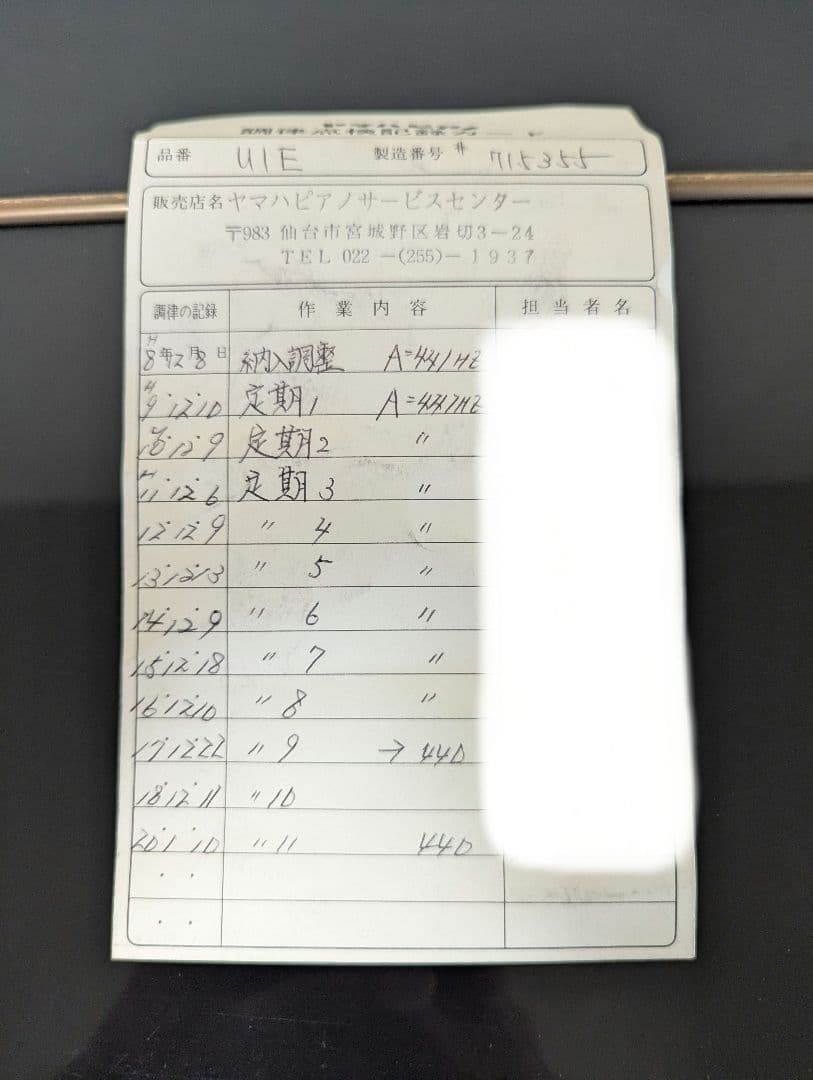 調律点検記録カード
品番 U1E 製造番号 # 715355
販売店名 ヤマハピアノサービスセンター
〒983 仙台市宮城野区岩切3-24
TEL 022-(255)-1937
調律の記録 作業内容 担当者名
H8年12月8日 納入調整 A=441HZ
H9・12・10 定期1 A=441HZ
H10・12・9 定期2 〃
H11・12・6 定期3 〃
12・12・9 〃 4 〃
13・12・13 〃 5 〃
14・12・9 〃 6 〃
15・12・18 〃 7 〃
16・12・10 〃 8 〃
17・12・22 〃 9 → 440
18・12・11 〃 10
20・1・10 〃 11 440